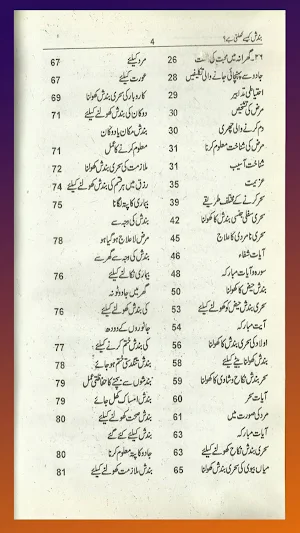 بندش کیسے کھلتی ہے؟
4
۲۶۔ گھرانہ میں محبت کی 26
جادو سے پہنچائی جانے والی تکلیفیں 28
احتیاطی تدابیر 29
مرض کی تشخیص 30
دم کرنے والی چھری 30
مرض کی شناخت معلوم کرنا 31
شناخت آسیب 31
عزیمت 35
سحر کرنے کے مختلف طریقے 39
سحری سفلی جنسی بندش کا کھولنا 42
سحری نامردی کا علاج 45
آیات شفاء 46
سورہ و آیات مبارکہ 48
بندش حیض کا کھولنا 50
سحری بندش حیض کو کھولنے کیلئے 53
آیت مبارکہ 54
اولاد کی سحری بندش کا کھولنا 56
بندش کھولنا بیٹے کیلئے 58
سحر بندش نکاح و شادی کا کھولنا 59
آیات سحر 60
مرد کی صورت میں 61
آیات مبارکہ 63
سحری بندش نکاح کھولنے کیلئے 63
میاں بیوی کی سحری بندش کھولنا 65
مرد کیلئے 67
عورت کیلئے 67
کاروبار کی سحری بندش کھولنا 69
دوکان کی بندش کھولنے کیلئے 71
بندش مکان یا دوکان
معلوم کرنے کا عمل 71
ملازمت کی سحری بندش کھولنا 72
رزق میں ہر قسم کی بندش کھولنے کیلئے 74
بیماری کا پتہ لگانا 75
بندش کی وجہ سے
مرض لا علاج ہو گیا ہو 78
بندش کی وجہ سے گھر سے
بیماری نکالنے کیلئے 76
گھر میں جادو ٹونہ
کی بندش کھولنے کیلئے 76
جانوروں کے دودھ
کی بندش ختم کرنے کیلئے 77
بندش تنگدستی ختم ہو جائے 78
بندشوں سے بچنے کا حفاظتی عمل 79
بندش امساک کھل جائے 79
بندش صحت کھولنے کیلئے 80
بندش کیلئے کئے گئے
جادو کا پتہ معلوم کرنا 80
بندش ملازمت کھولنے کیلئے 81